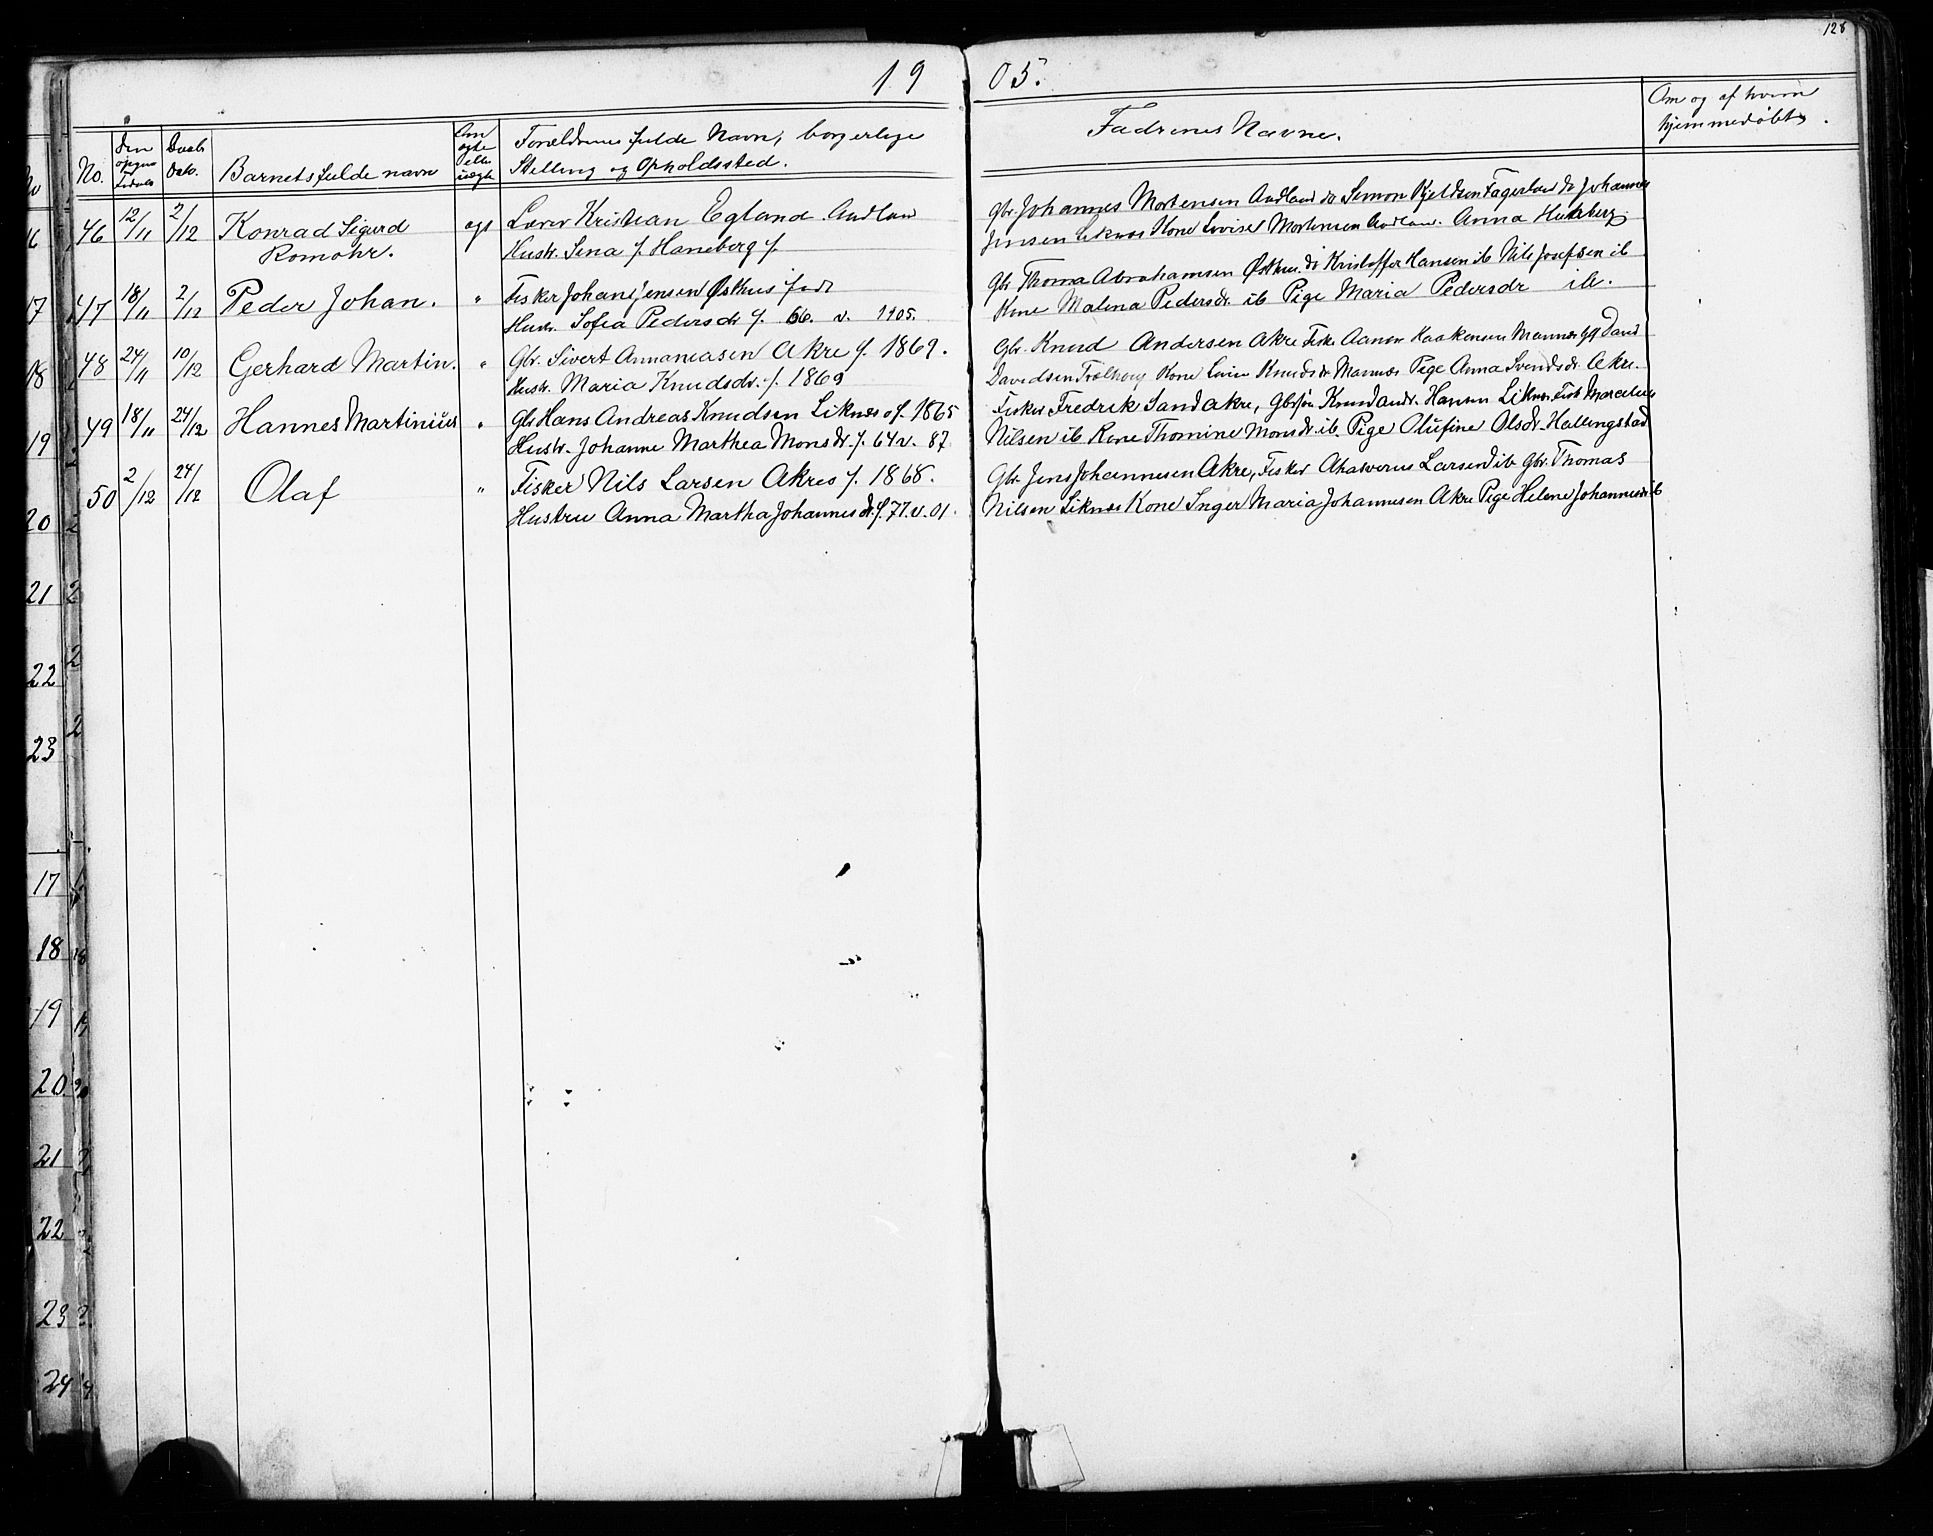 128
19 05.
No. Den Daabs Barnets fulde navn Om ægte eller uægte Forældrenes fulde Navn, borgerlige
Dato. Stilling og Opholdssted.
Faddrenes Navne.
Om og af hvem
hjemmedøbt.
46 12/11 2/12 Konrad Sigurd
Romohr.
egt Lærer Kristian Egland Audland
Hustr. Sina f. Haneberg f.
Gbr. Johannes Mortensen Audland do Simon Kjeldsen Fagerland do Johannes
Jensen Liknes Kone Lovise Mortensen Audland. Anna
47 18/11 2/12 Peder Johan.
" Fisker Johan Jensen Østhus født
Hustr. Sofia Pedersdr f. 66. v. 1905.
Gbr Thoma Abrahamsen Østhus do Kristoffer Hansen ib Nils Josefsen ib
Kone Malena Pedersdr. ib Pige Maria Pedersdr ib.
48 24/11 10/12 Gerhard Martin.
" Gbr. Sivert Annaniasen Akre f. 1869.
Hustr. Maria Knudsdr. f. 1869
Gbr. Knud Andersen Akre Fisk. Aanon Haakonsen Mannes Gbr David
Davidsen Kone Knudsdr Mannes Pige Anna Svendsdr. Akre.
49 18/11 24/12 Hannes Martinius
" Gbr Hans Andreas Knudsen Liknes f. 1865
Hustr. Johanne Marthea Monsdr. f. 64 v. 87
Fisker Fredrik Sand Akre, Gbrsøn Knud Andr. Hansen Liknes Fisk Marcelius
Nilsen ib Kone Thomine Monsdr. ib. Pige Olufine Olsdr. Hallingstad
50 2/12 24/12 Olaf
" Fisker Nils Larsen Akre f. 1868.
Hustru Anna Martha Johannesdr. f. 77. v. 01.
Gbr Jens Johannesen Akre, Fisker Ahasverus Larsen ib Gbr. Thomas
Nilsen Liknes Kone Inger Maria Johannesen Akre Pige Helene Johannesdr ib
17
18
19
20
21
22
23
17
18
19
20
21
22
23
24